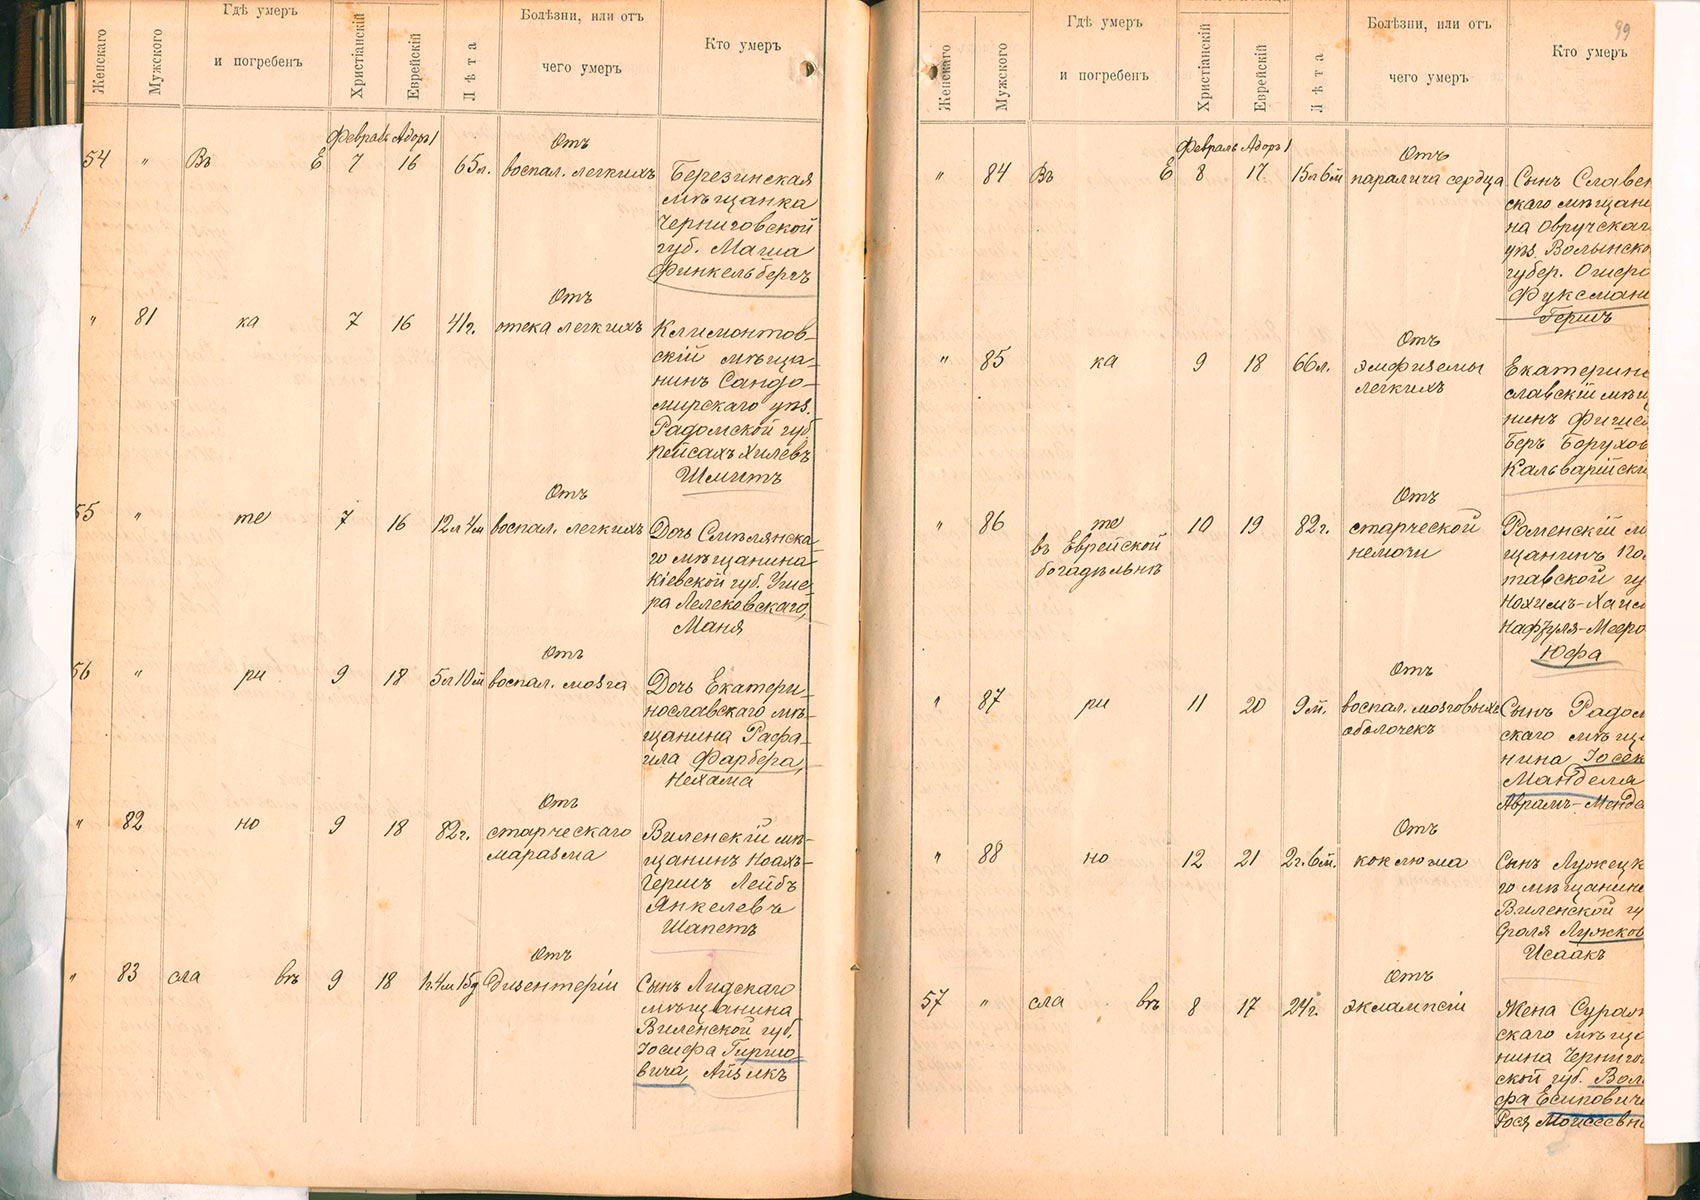 Женскаго
Мужского
Гдѣ умеръ
и погребенъ
Христіанскій
Еврейскій
Лѣта
Болѣзни, или отъ
чего умеръ
Кто умеръ
Февраль Адоръ 1
54 " Въ Е 7 16 65 л. Отъ
воспал. легкихъ
Березинская
мѣщанка
Черниговской
губ. Маша
Финкельбергъ
" 81 ка 7 16 41 г. Отъ
отека легкихъ
Климонтов-
скій мѣща-
нинъ Сандо-
мирскаго уѣз.
Радомской губ.
Пейсахъ Хилевъ
Шмитъ
55 " те 7 16 12 л 4 м Отъ
воспал. легкихъ
Дочь Смѣлянска-
го мѣщанина
Кіевской губ. Уше-
ра Лелековскаго,
Маня
56 " ри 9 18 5 л 10 м Отъ
воспал. мозга
Дочь Екатери-
нославскаго мѣ-
щанина Рафа-
ила Фарбера,
Нехама
" 82 но 9 18 82 г. Отъ
старческаго
маразма
Виленскій мѣ-
щанинъ Ноахъ-
Гершъ Лейбъ
Янкелевъ
Шапетъ
" 83 сла вѣ 9 18 1 г. 4 м 15 д Отъ
дизентеріи
Сынъ Лидскаго
мѣщанина
Виленской губ.
Іосифа Гиршо-
вича, Айзикъ
99
Женскаго
Мужского
Гдѣ умеръ
и погребенъ
Христіанскій
Еврейскій
Лѣта
Болѣзни, или отъ
чего умеръ
Кто умеръ
Февраль Адоръ 1
" 84 Въ Е 8 17 15 л 6 м Отъ
паралича сердца
Сынъ Славен
скаго мѣщани
на Овручскаг
уѣз. Волынско
губер. Ошеро
Фуксман
Гершъ
" 85 ка 9 18 66 л. Отъ
эмфиземы
легкихъ
Екатерино
славскій мѣщ
нинъ Фишел
Беръ Борухов
Кальварійскі
" 86 те
въ Еврейской
богадѣльнѣ
10 19 82 г. Отъ
старческой
немочи
Роменскій мѣ
щанинъ Пол
тавской гу
Нохимъ-Хаим
Нафтуля-Мееро
Юфа
" 87 ри 11 20 9 м. Отъ
воспал. мозговыхъ
оболочекъ
Сынъ Радом
скаго мѣща
нина Іосек
Манделя
Аврамъ-Менде
" 88 но 12 21 2 г. 6 м. Отъ
коклюша
Сынъ Лужецка
го мѣщанина
Виленской гу
Сроля Лужков
Исаакъ
57 " сла вѣ 8 17 24 г. Отъ
эклампсіи
Жена Сураж
скаго мѣща
нина Чернигов
ской губ. Вол
фа Есиповича
Рося Моисеевн